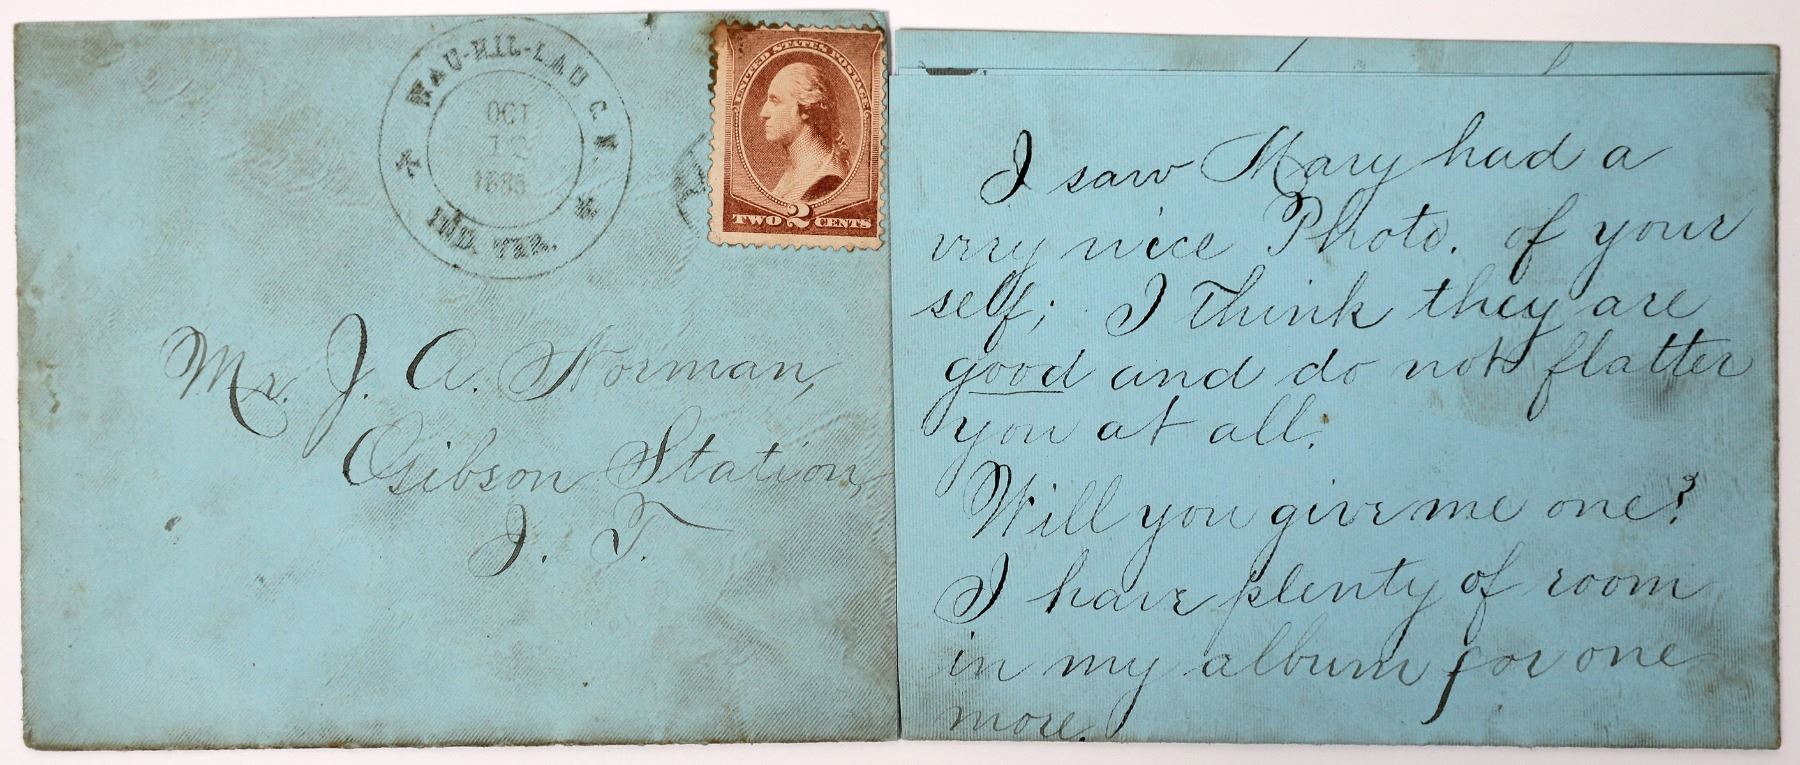 WAU-HIL-LAU C. N.
OCT
12
1885
IND. TER.
UNITED STATES POSTAGE
TWO 2 CENTS
Mr. J. A. Norman,
Gibson Station,
I. T.
I saw Mary had a
very nice Photo. of your
self; I think they are
good and do not flatter
you at all.
Will you give me one?
I have plenty of room
in my album for one
more.